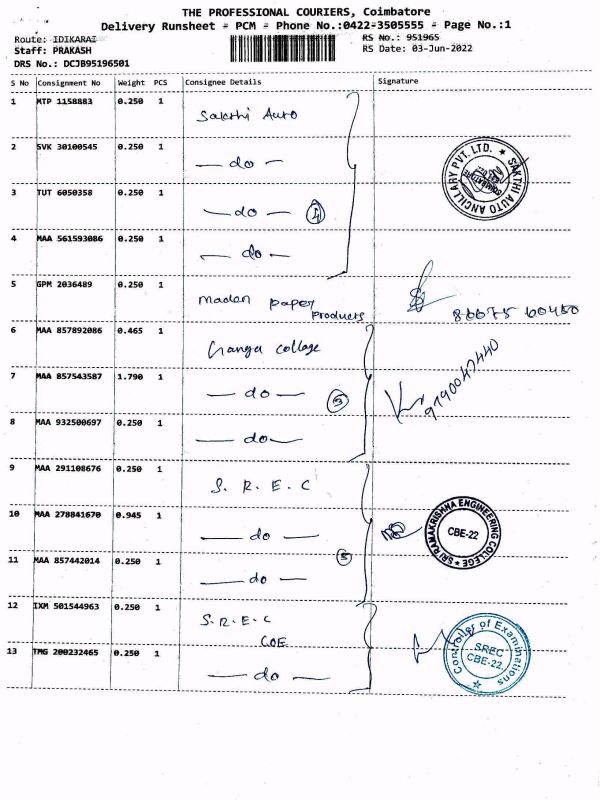 THE PROFESSIONAL COURIERS, Coimbatore
Delivery Runsheet # PCM # Phone No.:0422-3505555 # Page No.:1
Route: IDIKARAI
RS No.: 951965
Staff: PRAKASH
RS Date: 03-Jun-2022
DRS No.: DCJB95196501
S No Consignment No Weight PCS Consignee Details Signature
1 MTP 1158883 0.250 1 Sakthi Auto
2 SVK 30100545 0.250 1 — do —
SAKTHI AUTO ANCILLARY PVT. LTD. ★
3 TUT 6050358 0.250 1 — do — 4
4 MAA 561593086 0.250 1 — do —
5 GPM 2036489 0.250 1 maden paper
products
6 MAA 857892086 0.465 1 Ganga college
7 MAA 857543587 1.790 1 — do — 9790047440
8 MAA 932500697 0.250 1 — do —
9 MAA 291108676 0.250 1 S. R. E. C
10 MAA 278841670 0.945 1 — do —
SRI RAMAKRISHNA ENGINEERING COLLEGE ★
CBE-22
11 MAA 857442014 0.250 1 — do —
12 IXM 501544963 0.250 1 S. R. E. C
COE
Controller of Examinations
SREC
CBE-22.
13 TMG 200232465 0.250 1 — do —